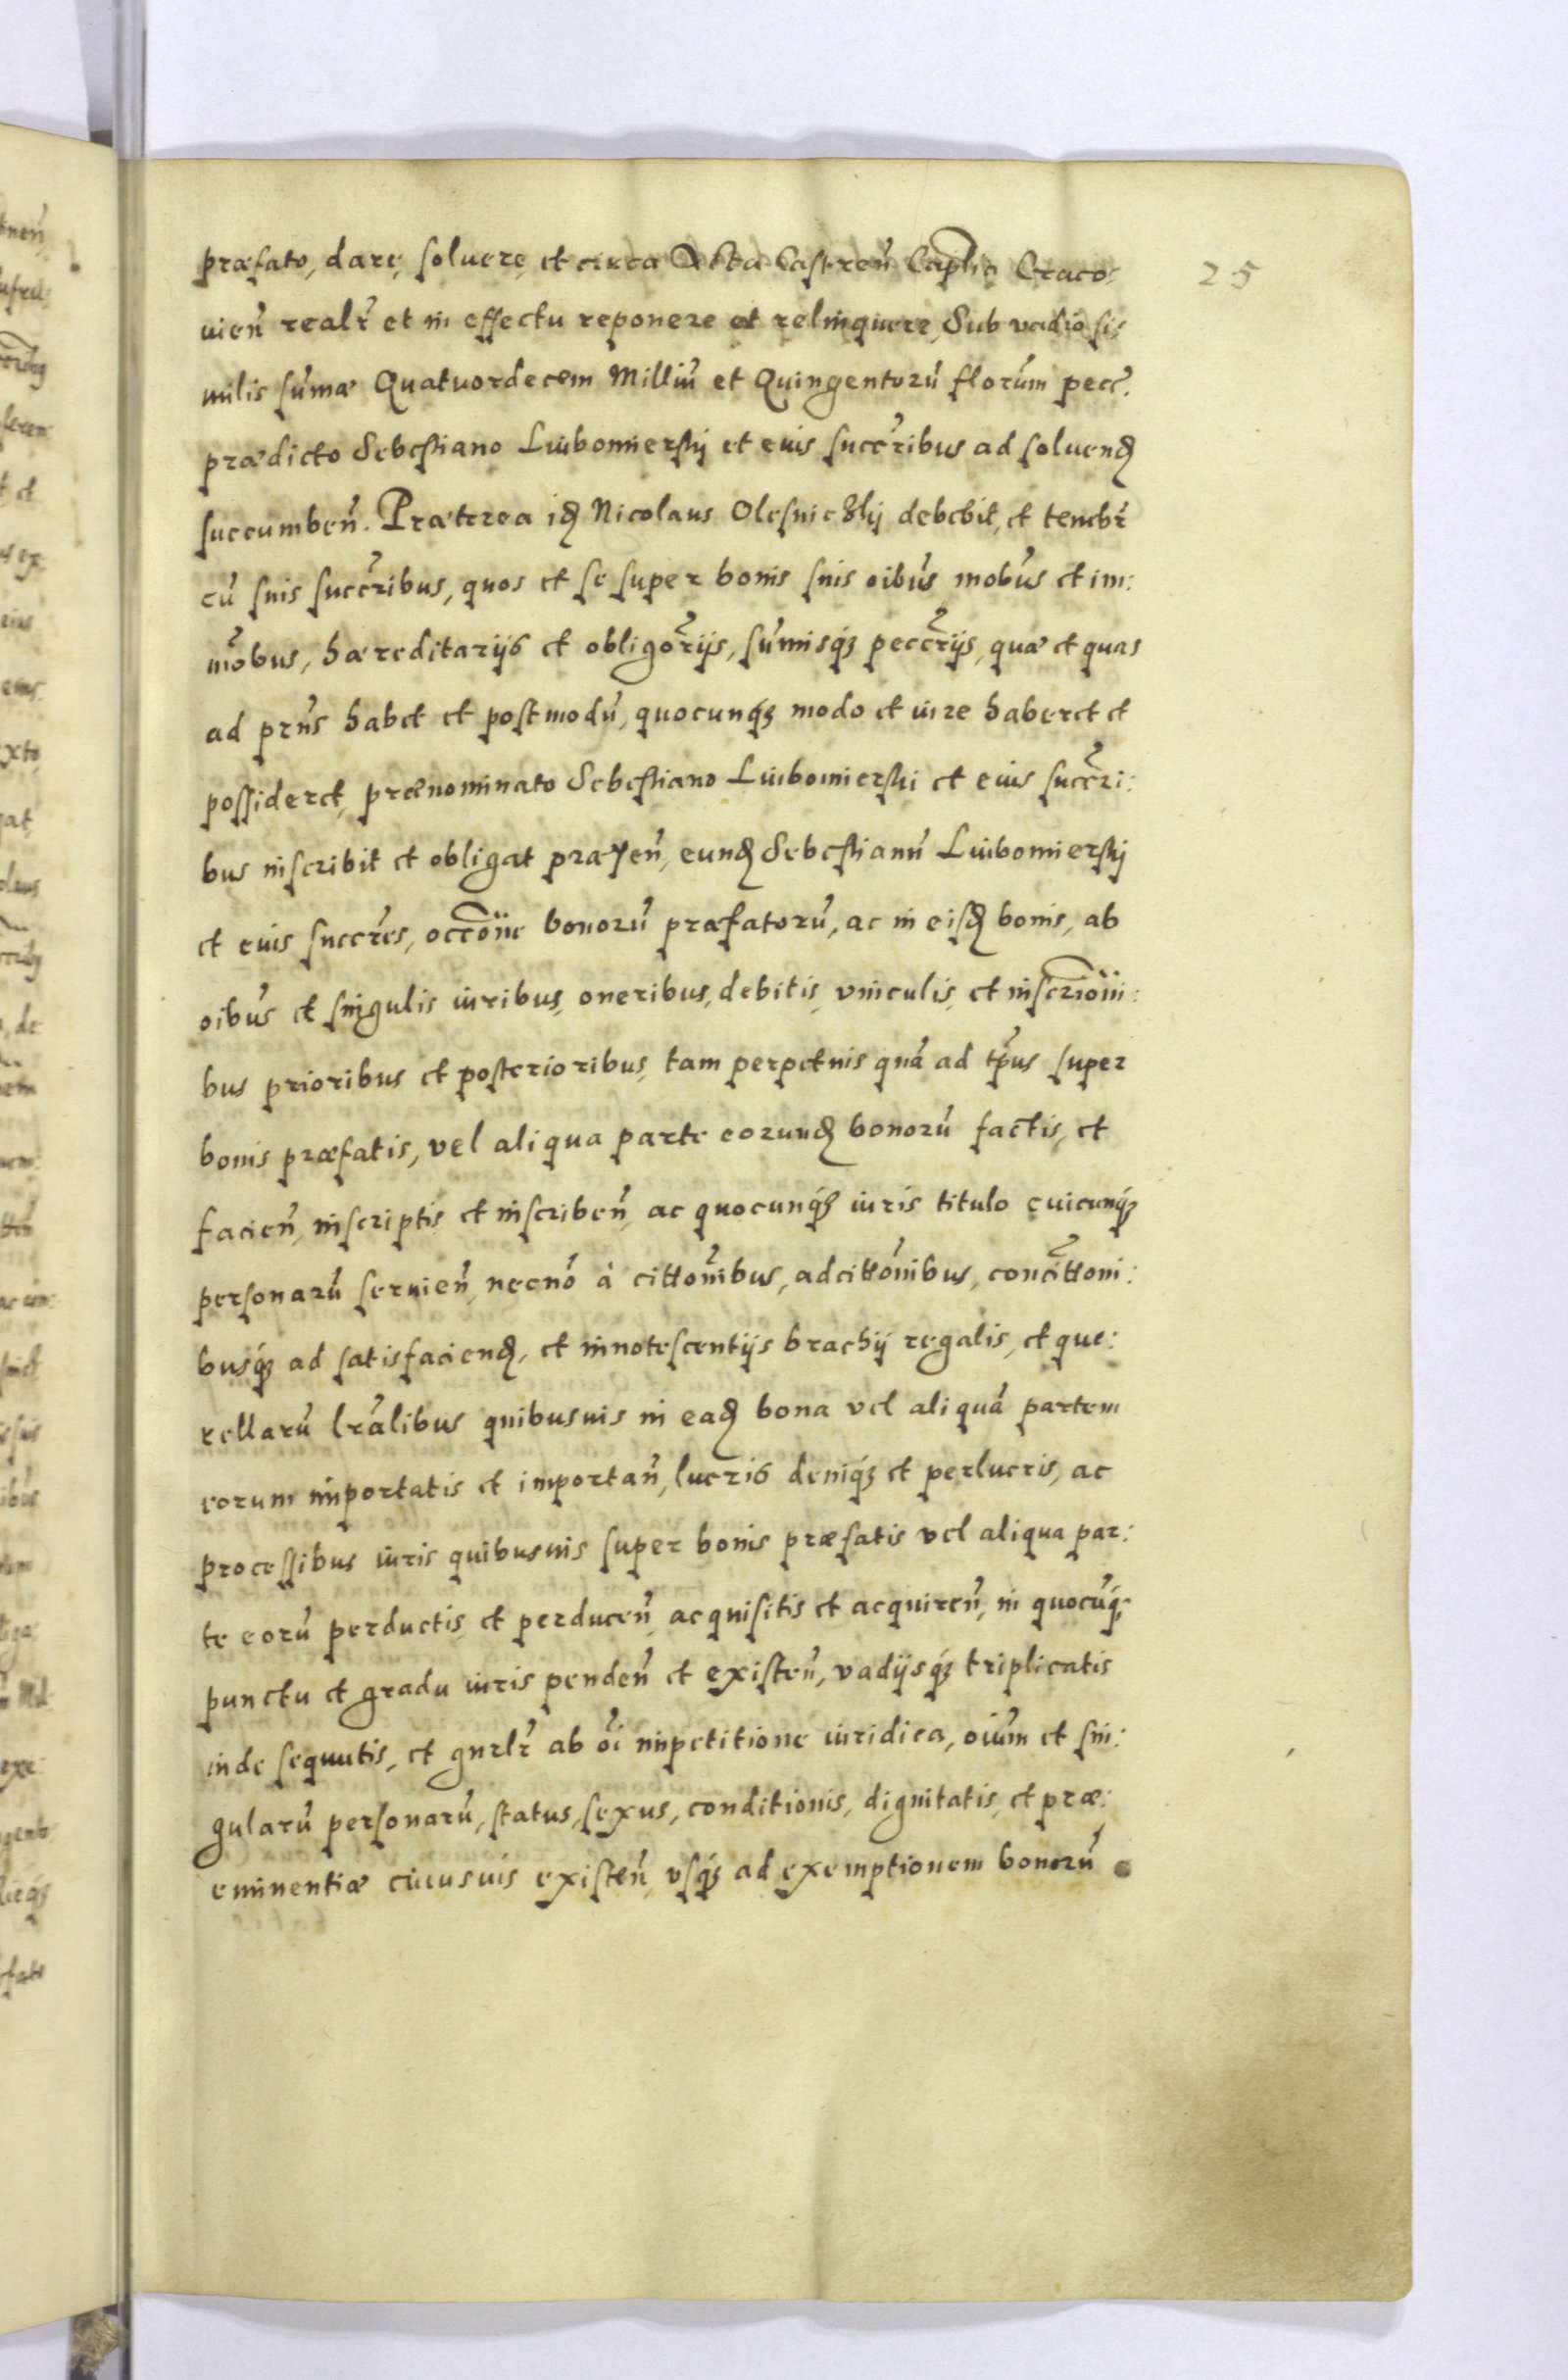 præfato, dare, soluere, et circa Acta Castren̄ Caplia Craco:
uien̄ realr̄ et in effectu reponere et relinquere, Sub vadio si:
milis sum̄æ Quatuordecem Milliū et Quingentorū florūm pecc̄.
prædicto Sebestiano Luibomierskij et euis succr̄ibus ad soluend̨
succumben̄. Præterea id̨ Nicolaus Olesniczkij debebit, et tenebr̄
cū suis succr̄ibus, quos et se super bonis suis oibūs mobūs et im:
mōbus, hæreditarijs et obligor̄ijs, sum̄isq́ȝ peccr̄ijs, quæ et quas
ad prn̄s habet et postmodū, quocunq́ȝ modo et iure haberet et
possideret, prænominato Sebestiano Luibomierski et euis succr̄i:
bus inscribit et obligat præsen̄, eund̨ Sebestianū Luibomierskij
et euis succr̄es, occōne bonorū præfatorū, ac in eisd̨ bonis, ab
oibūs et singulis iuribus, oneribus, debitis, vinculis, et inscriōni:
bus prioribus et posterioribus, tam perpetuis quā ad tp̄us super
bonis præfatis, vel aliqua parte eorund̨ bonorū factis, et
facien̄, inscriptis et inscriben̄, ac quocunq́ȝ iuris titulo cuicunq́ȝ
personarū seruien̄, necnō à cittōnibus, adcittōnibus, concittoni:
busq́ȝ ad satisfaciend̨, et innotescentijs brachij regalis, et que:
rellarū lr̄alibus quibusuis in ead̨ bona vel aliquā partem
eorum importatis et importan̄, lucris deniq́ȝ et perlucris, ac
processibus iuris quibusuis super bonis præfatis vel aliqua par:
te eorū perductis, et perducen̄, acquisitis et acquiren̄, in quocūq́ȝ
punctu et gradu iuris penden̄ et existen̄, vadijsq́ȝ triplicatis
inde sequutis, et gnrlr̄ ab oī impetitione iuridica, oiūm et sin:
gularū personarū, status, sexus, conditionis, dignitatis, et præ:
eminentiæ cuiusuis existen̄, vsq́ȝ ad exemptionem bonorū
25